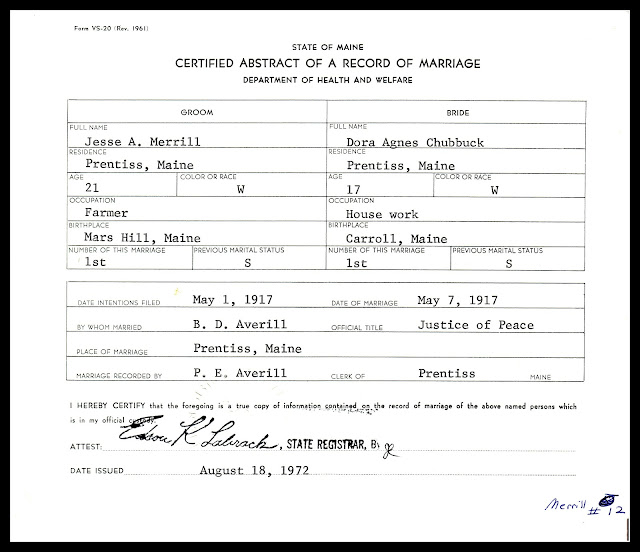 Form VS-20 (Rev. 1961)
STATE OF MAINE
CERTIFIED ABSTRACT OF A RECORD OF MARRIAGE
DEPARTMENT OF HEALTH AND WELFARE
GROOM BRIDE
FULL NAME FULL NAME
Jesse A. Merrill Dora Agnes Chubbuck
RESIDENCE RESIDENCE
Prentiss, Maine Prentiss, Maine
AGE COLOR OR RACE AGE COLOR OR RACE
21 W 17 W
OCCUPATION OCCUPATION
Farmer House work
BIRTHPLACE BIRTHPLACE
Mars Hill, Maine Carroll, Maine
NUMBER OF THIS MARRIAGE PREVIOUS MARITAL STATUS NUMBER OF THIS MARRIAGE PREVIOUS MARITAL STATUS
1st S 1st S
DATE INTENTIONS FILED May 1, 1917 DATE OF MARRIAGE May 7, 1917
BY WHOM MARRIED B. D. Averill OFFICIAL TITLE Justice of Peace
PLACE OF MARRIAGE Prentiss, Maine
MARRIAGE RECORDED BY P. E. Averill CLERK OF Prentiss MAINE
I HEREBY CERTIFY that the foregoing is a true copy of information contained on the record of marriage of the above named persons which
is in my official custody.
ATTEST: K , STATE REGISTRAR, By
DATE ISSUED August 18, 1972
Merrill
# 12